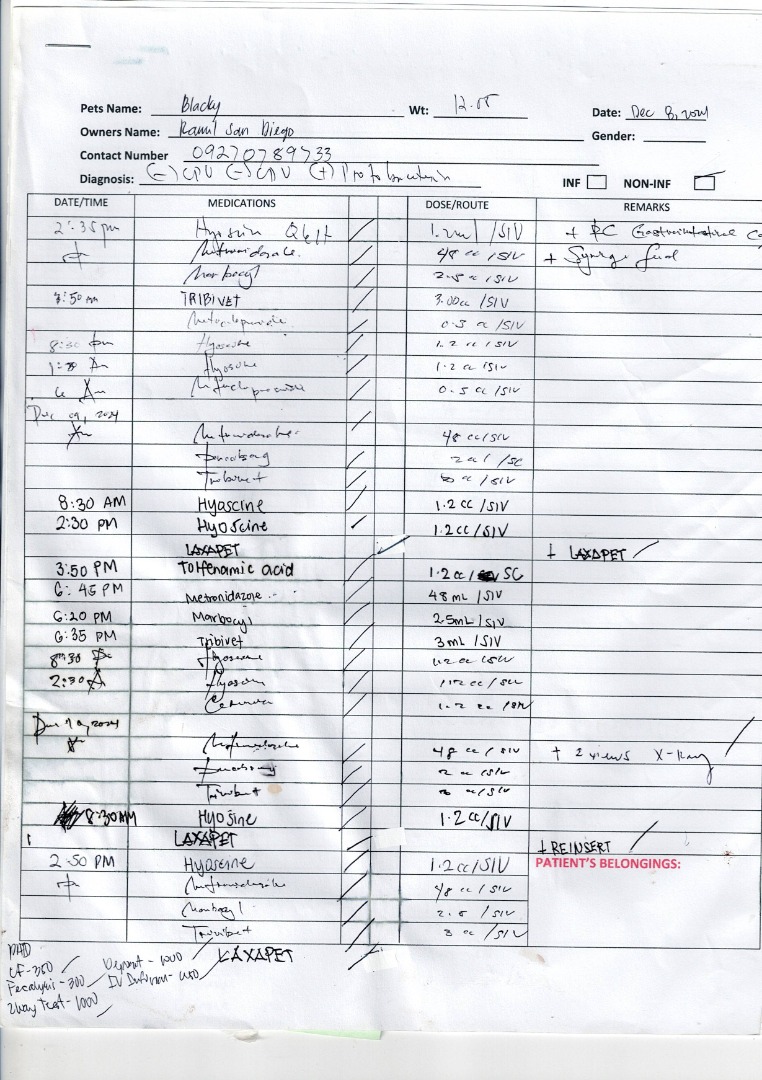 Pets Name: Blacky Wt: 12.05 Date: Dec 8, 2024
Owners Name: Ramil San Diego Gender:
Contact Number 09270789733
Diagnosis: (-) CPV (-) CDV (+)
INF NON-INF
DATE/TIME MEDICATIONS DOSE/ROUTE REMARKS
2:35 pm Hyoscin 1.2ml /SIV + RC Gastrointestinal
Metronidazole 48 cc /SIV +
Marbocyl 2.5 cc /SIV
3:50 TRIBIVET 3.00cc /SIV
Metoclopramide 0.5 cc /SIV
8:30 pm Hyoscine 1.2 cc /SIV
Am Hyoscine 1.2 cc /SIV
6 Am Metoclopramide 0.5 cc /SIV
Dec 09, 2024
Metronidazole 48 cc/SIV
/SC
Tribivet cc /SIV
8:30 AM Hyascine 1.2 cc /SIV
2:30 PM Hyoscine 1.2cc /SIV
LAXAPET + LAXAPET
3:50 PM Tolfenamic acid 1.2 cc / SC
6:45 PM Metronidazole 48 mL /SIV
6:20 PM Marbocyl 2.5mL /SIV
6:35 PM Tribivet 3 mL /SIV
8:30 Hyoscine 1.2 cc /SIV
2:30 A Hyoscine 1.2 cc /SIV
Cerenia 1.2 cc
Dec 10, 2024
Metronidazole 48 cc /SIV + 2 views X-Ray
cc /SIV
Tribivet cc /SIV
8:30AM Hyosine 1.2cc/SIV
LAXAPET + REINSERT
2:50 PM Hyoscine 1.2cc/SIV PATIENT'S BELONGINGS:
Metronidazole 48 cc /SIV
Marbocyl 2.5 /SIV
Tribivet 3 cc /SIV
LAXAPET
PAID
CF-350 Deposit - 1000
Fecalysis - 300 IV Infusion-
2way Test - 1000